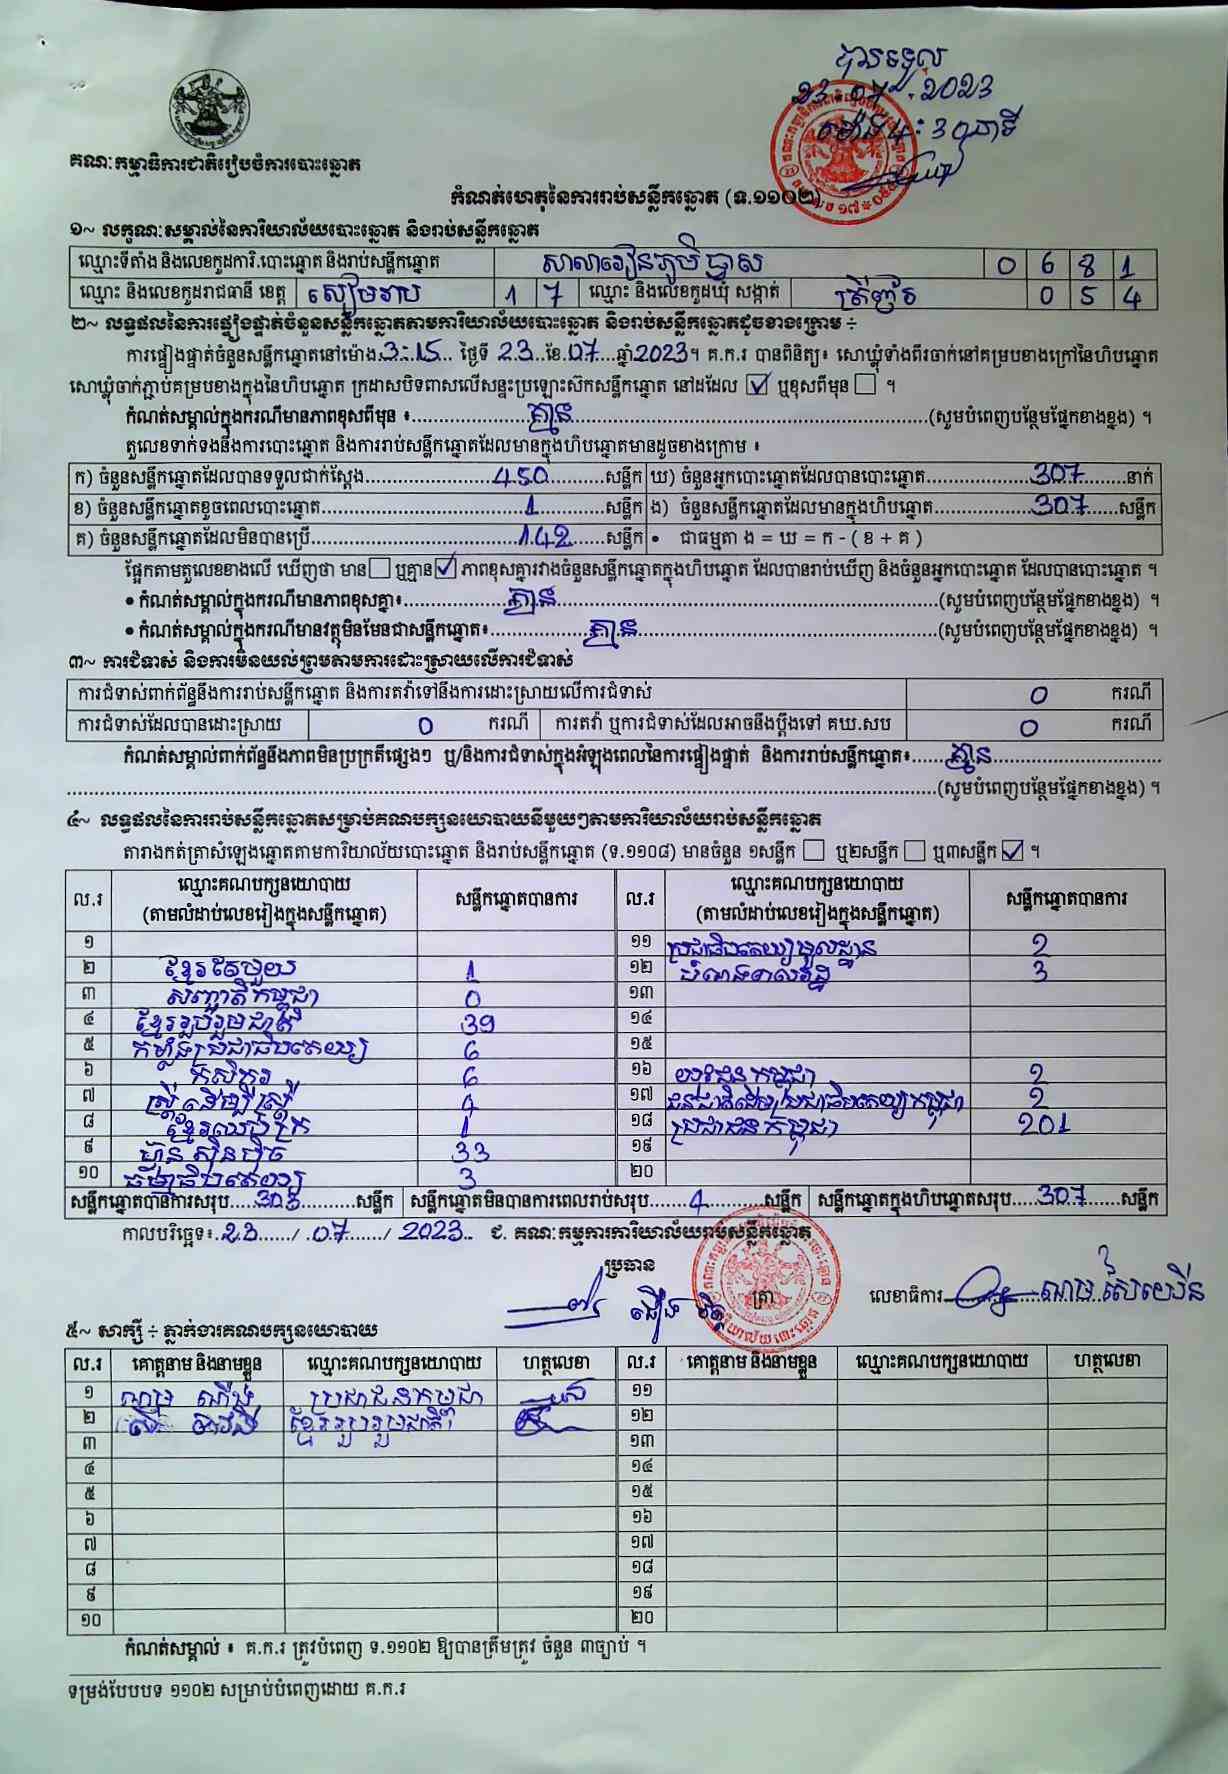 បានទទួល
23.07.2023
ម៉ោង 4:30 នាទី
គណៈកម្មាធិការជាតិរៀបចំការបោះឆ្នោត
កំណត់ហេតុនៃការរាប់សន្លឹកឆ្នោត (ទ.១១០២)
១~ លក្ខណៈសម្គាល់នៃការិយាល័យបោះឆ្នោត និងរាប់សន្លឹកឆ្នោត
ឈ្មោះទីតាំង និងលេខកូដការិ.បោះឆ្នោត និងរាប់សន្លឹកឆ្នោត សាលារៀនភូមិធ្លាស 0 6 8 1
ឈ្មោះ និងលេខកូដរាជធានី ខេត្ត សៀមរាប 1 7 ឈ្មោះ និងលេខកូដឃុំ សង្កាត់ ត្រីញ័រ 0 5 4
២~ លទ្ធផលនៃការផ្ទៀងផ្ទាត់ចំនួនសន្លឹកឆ្នោតតាមការិយាល័យបោះឆ្នោត និងរាប់សន្លឹកឆ្នោតដូចខាងក្រោម ÷
ការផ្ទៀងផ្ទាត់ចំនួនសន្លឹកឆ្នោតនៅម៉ោង 3:15 ថ្ងៃទី 23 ខែ 07 ឆ្នាំ 2023។ គ.ក.រ បានពិនិត្យ៖ សោឃ្លុំទាំងពីរចាក់នៅគម្របខាងក្រៅនៃហិបឆ្នោត
សោឃ្លុំចាក់ភ្ជាប់គម្របខាងក្នុងនៃហិបឆ្នោត ក្រដាសបិទពាសលើសន្ទះប្រឡោះស៊កសន្លឹកឆ្នោត នៅដដែល ☑ ឬខុសពីមុន ☐ ។
កំណត់សម្គាល់ក្នុងករណីមានភាពខុសពីមុន ៖ គ្មាន (សូមបំពេញបន្ថែមផ្នែកខាងខ្នង) ។
តួលេខទាក់ទងនឹងការបោះឆ្នោត និងការរាប់សន្លឹកឆ្នោតដែលមានក្នុងហិបឆ្នោតមានដូចខាងក្រោម ៖
ក) ចំនួនសន្លឹកឆ្នោតដែលបានទទួលជាក់ស្តែង 450 សន្លឹក ឃ) ចំនួនអ្នកបោះឆ្នោតដែលបានបោះឆ្នោត 307 នាក់
ខ) ចំនួនសន្លឹកឆ្នោតខូចពេលបោះឆ្នោត 1 សន្លឹក ង) ចំនួនសន្លឹកឆ្នោតដែលមានក្នុងហិបឆ្នោត 307 សន្លឹក
គ) ចំនួនសន្លឹកឆ្នោតដែលមិនបានប្រើ 142 សន្លឹក • ជាធម្មតា ង = ឃ = ក - ( ខ + គ )
ផ្អែកតាមតួលេខខាងលើ ឃើញថា មាន ☐ ឬគ្មាន ☑ ភាពខុសគ្នារវាងចំនួនសន្លឹកឆ្នោតក្នុងហិបឆ្នោត ដែលបានរាប់ឃើញ និងចំនួនអ្នកបោះឆ្នោត ដែលបានបោះឆ្នោត ។
• កំណត់សម្គាល់ក្នុងករណីមានភាពខុសគ្នា៖ គ្មាន (សូមបំពេញបន្ថែមផ្នែកខាងខ្នង) ។
• កំណត់សម្គាល់ក្នុងករណីមានវត្ថុមិនមែនជាសន្លឹកឆ្នោត៖ គ្មាន (សូមបំពេញបន្ថែមផ្នែកខាងខ្នង) ។
៣~ ការជំទាស់ និងការមិនយល់ព្រមតាមការដោះស្រាយលើការជំទាស់
ការជំទាស់ពាក់ព័ន្ធនឹងការរាប់សន្លឹកឆ្នោត និងការតវ៉ាទៅនឹងការដោះស្រាយលើការជំទាស់ 0 ករណី
ការជំទាស់ដែលបានដោះស្រាយ 0 ករណី ការតវ៉ា ឬការជំទាស់ដែលអាចនឹងប្តឹងទៅ គឃ.សប 0 ករណី
កំណត់សម្គាល់ពាក់ព័ន្ធនឹងភាពមិនប្រក្រតីផ្សេងៗ ឬ/និងការជំទាស់ក្នុងអំឡុងពេលនៃការផ្ទៀងផ្ទាត់ និងការរាប់សន្លឹកឆ្នោត៖ គ្មាន
(សូមបំពេញបន្ថែមផ្នែកខាងខ្នង) ។
៤~ លទ្ធផលនៃការរាប់សន្លឹកឆ្នោតសម្រាប់គណបក្សនយោបាយនីមួយៗតាមការិយាល័យរាប់សន្លឹកឆ្នោត
តារាងកត់ត្រាសំឡេងឆ្នោតតាមការិយាល័យបោះឆ្នោត និងរាប់សន្លឹកឆ្នោត (ទ.១១០៨) មានចំនួន ១សន្លឹក ☐ ឬ២សន្លឹក ☐ ឬ៣សន្លឹក ☑ ។
ល.រ ឈ្មោះគណបក្សនយោបាយ (តាមលំដាប់លេខរៀងក្នុងសន្លឹកឆ្នោត) សន្លឹកឆ្នោតបានការ ល.រ ឈ្មោះគណបក្សនយោបាយ (តាមលំដាប់លេខរៀងក្នុងសន្លឹកឆ្នោត) សន្លឹកឆ្នោតបានការ
១ ១១ ប្រជាធិបតេយ្យមូលដ្ឋាន 2
២ ខ្មែរតែមួយ 1 ១២ 3
៣ សញ្ជាតិកម្ពុជា 0 ១៣
៤ ខ្មែររួបរួមជាតិ 39 ១៤
៥ កម្លាំងប្រជាធិបតេយ្យ 6 ១៥
៦ កសិករ 6 ១៦ យុវជនកម្ពុជា 2
៧ ស្ត្រីដើម្បីស្ត្រី 4 ១៧ ជនជាតិដើមប្រជាធិបតេយ្យកម្ពុជា 2
៨ ខ្មែរឈប់ក្រ 1 ១៨ ប្រជាជនកម្ពុជា 201
៩ ហ៊្វុនស៊ិនប៉ិច 33 ១៩
១០ ធម្មាធិបតេយ្យ 3 ២០
សន្លឹកឆ្នោតបានការសរុប 303 សន្លឹក សន្លឹកឆ្នោតមិនបានការពេលរាប់សរុប 4 សន្លឹក សន្លឹកឆ្នោតក្នុងហិបឆ្នោតសរុប 307 សន្លឹក
កាលបរិច្ឆេទ៖ 23 / 07 / 2023 ជ. គណៈកម្មការការិយាល័យរាប់សន្លឹកឆ្នោត
ប្រធាន
ត្រា លេខាធិការ
៥~ សាក្សី ÷ ភ្នាក់ងារគណបក្សនយោបាយ
ល.រ គោត្តនាម និងនាមខ្លួន ឈ្មោះគណបក្សនយោបាយ ហត្ថលេខា ល.រ គោត្តនាម និងនាមខ្លួន ឈ្មោះគណបក្សនយោបាយ ហត្ថលេខា
១ ប្រជាជនកម្ពុជា ១១
២ ខ្មែររួបរួមជាតិ ១២
៣ ១៣
៤ ១៤
៥ ១៥
៦ ១៦
៧ ១៧
៨ ១៨
៩ ១៩
១០ ២០
កំណត់សម្គាល់ ៖ គ.ក.រ ត្រូវបំពេញ ទ.១១០២ ឱ្យបានត្រឹមត្រូវ ចំនួន ៣ច្បាប់ ។
ទម្រង់បែបបទ ១១០២ សម្រាប់បំពេញដោយ គ.ក.រ